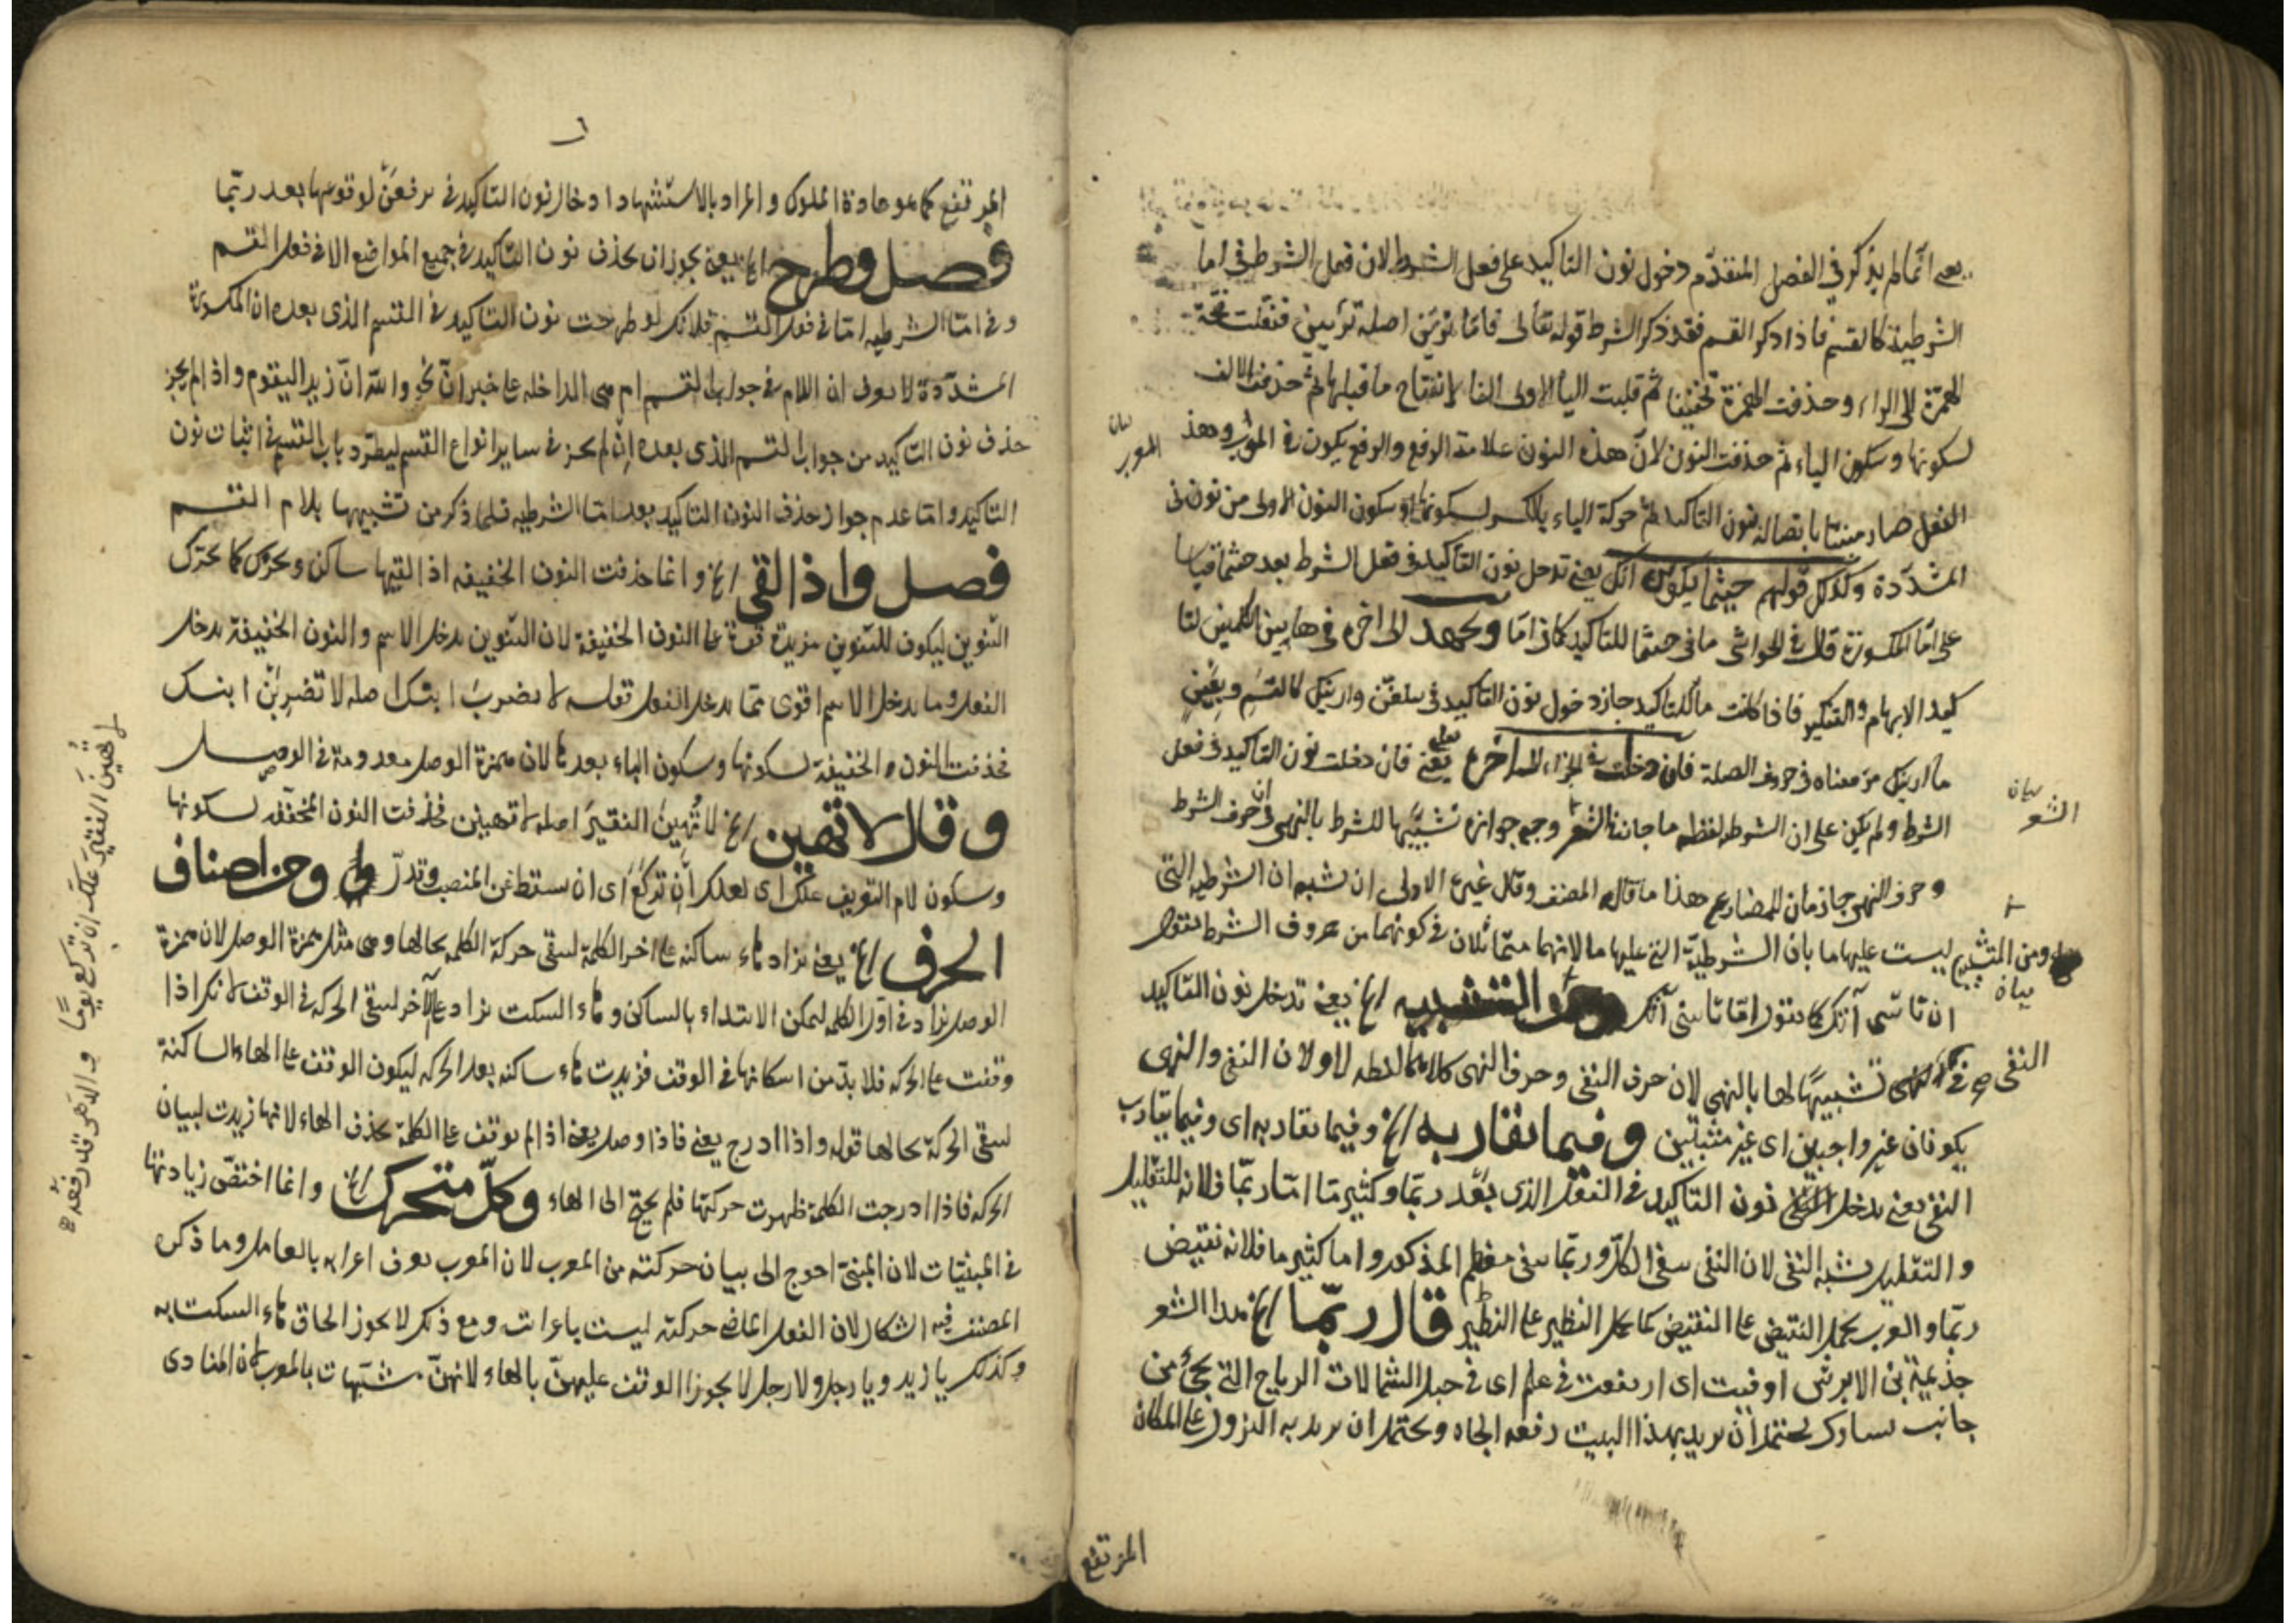 يعنى انما لم يذكر في الفصل المتقدم دخول نون التاكيد على فعل الشرط لان فعل الشرط في اما
الشرطية كالقسم فاذا ذكر القسم فقد ذكر الشرط قوله تعالى فاما ترين اصله ترئيين فنقلت فتحة
الهمزة الى الراء وحذفت الهمزة تخفيفا ثم قلبت اليا الاولى الفا لانفتاح ما قبلها ثم حذفت الالف
لسكونها وسكون الياء ثم حذفت النون لان هذه النون علامة الرفع والرفع يكون في المعرب وهذا
بيان المعرب
الفعل صار مبنيا باتصاله نون التاكيد ثم حركة الياء بالكسر لسكونها وسكون النون الاولى من نونى
المشددة وكذلك قولهم حيثما يكونن آتك يعنى تدخل نون التاكيد في فعل الشرط بعد حيثما قياسا
على اما المكسورة قال في الحواشى ما فى حيثما للتاكيد كما في اما وبجهد الى اخره في هاتين الكلمتين لتا
كيد الابهام والتنكير فاذا كانت ما للتاكيد جاز دخول نون التاكيد في
ما اريتك من معناه في حروف الصلة فان دخلت في الجزاء الى اخره يعنى فان دخلت نون التاكيد في فعل
الشرط ولم يكن على ان الشرطه لفظه ما جاز في الشعر وجه جوازه تشبيها للشرط بالنهى ان حرف الشرط
بيان الشعر
وحرف النهى جازمان للمضارع هذا ما قاله المصنف وقال غيره الاولى ان تشبه ان الشرطية التى
ليست عليها ما بان الشرطية التى عليها ما لانهما متماثلان في كونهما من حروف الشرط فتقول
ومن التشبيه بيان
ان تأتنى آتك كما تقول اما تأتينى آتك ومن التشبيه الخ يعنى تدخل نون التاكيد
النفى صح في تشبيها لها بالنهى لان حرف النفى وحرف النهى كلاهما لفظه لا ولان النفى والنهى
يكونان غير واجبين اى غير مثبتين وفيما يقاربه الخ وفيما يقاربه اى وفيما يقارب
النفى يعنى يدخل نون التاكيد في الفعل الذى بعد ربما وكثير ما اما ربما فلانه للتقليل
والتقليل يشبه النفى لان النفى ينفى الكل وربما ينفى معظم المذكور واما كثير ما فلانه نقيض
ربما والعرب يحمل النقيض على النقيض كما يحمل النظير على النظير قال ربما الخ هذا الشعر
جذيمة بن الابرش اوفيت اى ارتفعت في علم اى في جبل الشمالات الرياح التى تجئ من
جانب يسارك يحتمل ان يريد بهذا البيت رفعه الجاه ويحتمل ان يريد به النزول على المكان
المرتفع
المرتفع كما هو عادة الملوك والمراد بالاستشهاد ادخال نون التاكيد في ترفعن لوقوعها بعد ربما
فصل وطرح الخ يعنى يجوز ان يحذف نون التاكيد في جميع المواضع الا في فعل القسم
وفى اما الشرطيه اما في فعل القسم فلانك لو طرحت نون التاكيد في القسم الذى بعده ان المكسورة
المشددة لا يعرف ان اللام في جواب القسم ام هى الداخله على خبر ان نحو والله ان زيد ليقوم واذا لم يجز
حذف نون التاكيد من جواب القسم الذى بعده ان لم يجز في ساير انواع القسم ليطرد باب القسم في اثبات نون
التاكيد واما عدم جواز حذف النون التاكيد بعد اما الشرطيه فلما ذكر من تشبيهها بلام القسم
فصل واذا لقى الخ وانما حذفت النون الخفيفه اذا لقيها ساكن ويحرك كما يحرك
التنوين ليكون للتنوين مزية قوة على النون الخفيفة لان التنوين يدخل الاسم والنون الخفيفة يدخل
الفعل وما يدخل الاسم اقوى مما يدخل الفعل تقول لا تضرب ابنك اصله لا تضربن ابنك
فحذفت النون الخفيفة لسكونها وسكون الباء بعدها لان همزة الوصل معدومة في الوصل
وقال لا تهين الخ لا تهين الفقير اصله لا تهينن فحذفت النون المخففه لسكونها
وسكون لام التعريف علك اى لعلك ان تركع اى ان تسقط عن المنصب وتذل ومن اصناف
الحرف الخ يعنى يزاد هاء ساكنه على اخر الكلمة لتبقى حركة الكلمه بحالها وهى مثل همزة الوصل لان همزة
الوصل يزاد في اول الكلمه ليمكن الابتداء بالساكن وهاء السكت يزاد على الآخر لتبقى الحركه في الوقف لانك اذا
وقفت على الحركه فلا بد من اسكانها في الوقف فزيدت هاء ساكنه بعد الحركه ليكون الوقف على الهاء الساكنة
لتبقى الحركة بحالها قوله واذا ادرج يعنى فاذا وصل يعنى اذا لم يوقف على الكلمة يحذف الهاء لانها زيدت لبيان
الحركه فاذا ادرجت الكلمة ظهرت حركتها فلم يحتج الى الهاء وكل متحرك الخ وانما اختص زيادتها
في المبنيات لان المبنى احوج الى بيان حركته من المعرب لان المعرب يعرف اعرابه بالعامل وما ذكره
المصنف فيه اشكال لان الفعل الماضى حركته ليست باعراب ومع ذلك لا يجوز الحاق هاء السكت به
وكذلك يا زيد ويا رجل ولا رجل لا يجوز الوقف عليهن بالهاء لانهن مشبهات بالمعرب لان المنادى
لا تهين الفقير علك ان تركع يوما والدهر قد رفعه